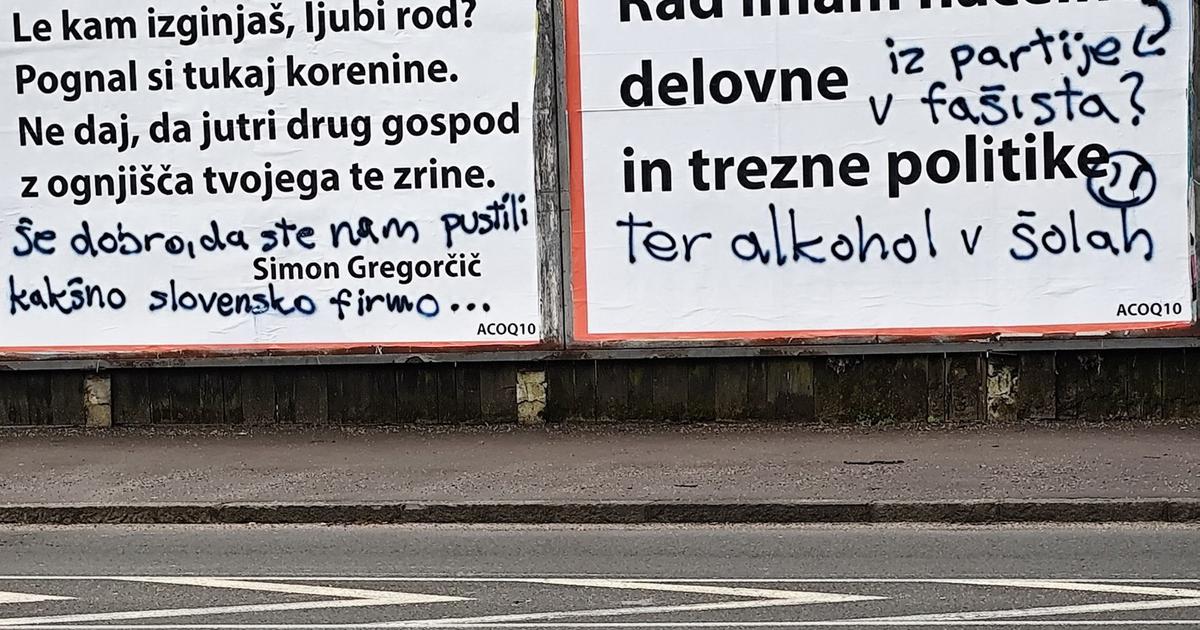 Le kam izginjaš, ljubi rod?
Pognal si tukaj korenine.
Ne daj, da jutri drug gospod
z ognjišča tvojega te zrine.
še dobro, da ste nam pustili
Simon Gregorčič
kakšno slovensko firmo...
ACOQ10
Rad imam
delovne
iz partije
v fašista?
in trezne politike
ter alkohol v šolah
ACOQ10